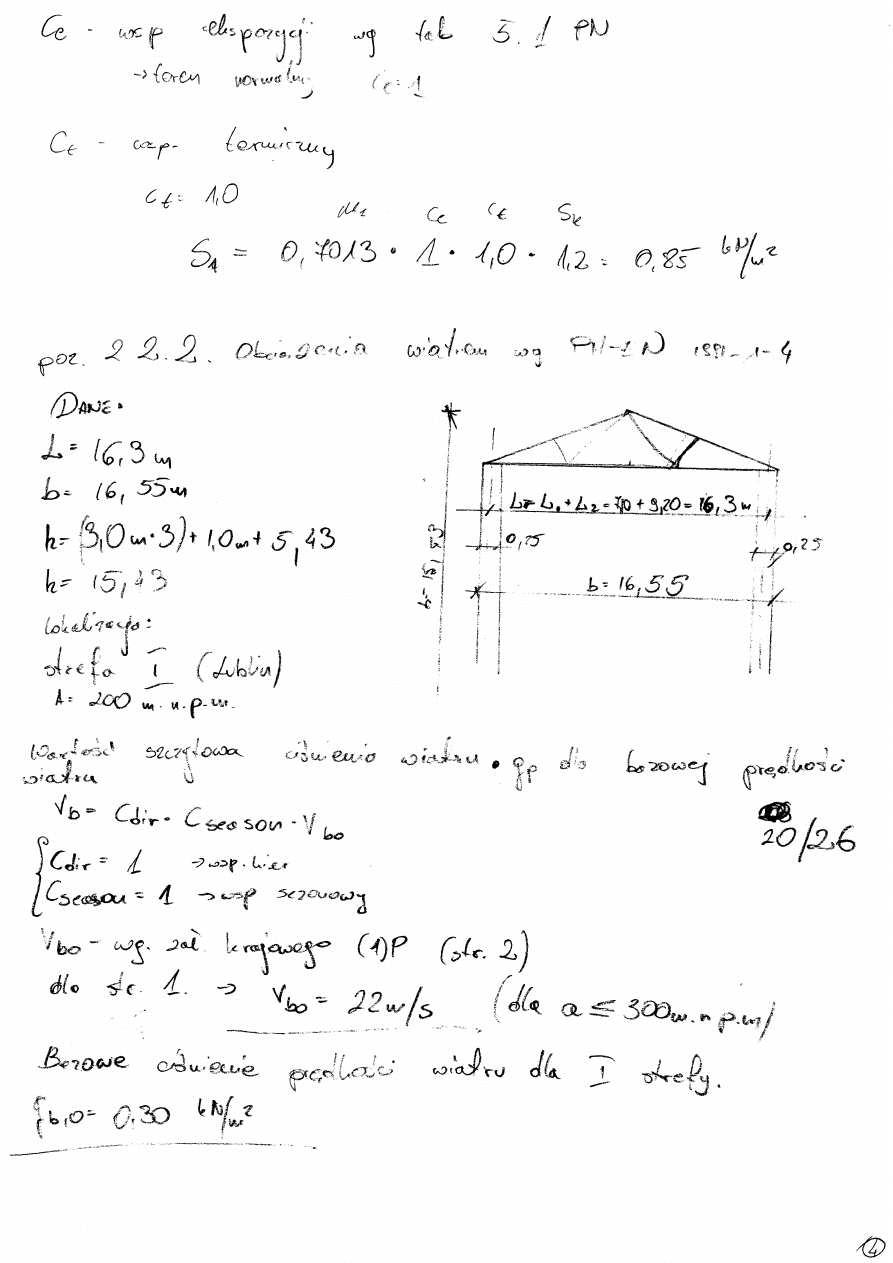 Ce - wsp ekspozycji wg tab 5.1 PN
→ teren normalny Ce=1
Ct - wsp. termiczny
Ct = 1,0
μ1 Ce Ct Sk
S1 = 0,7013 · 1 · 1,0 · 1,2 = 0,85 kN/m²
poz. 2 2.2. Obciążenia wiatrem wg PN-EN 1991-1-4
DANE:
L = 16,3 m
b = 16,55m
h = (3,0m·3) + 1,0m + 5,43
h = 15,43
Lokalizacja:
strefa I (Lublin)
A = 200 m.n.p.m.
L = L1 + L2 = 7,10 + 9,20 = 16,3m
0,25
0,25
b = 16,55
Wartość szczytowa ciśnienia wiatru qp dla bazowej prędkości
wiatru
Vb = Cdir · Cseason · Vbo
20/26
Cdir = 1 → wsp. kier
Cseason = 1 → wsp sezonowy
Vbo - wg. zał. krajowego (1)P (str. 2)
dla str. 1. → Vbo = 22m/s (dla a ≤ 300m.n p.m)
Bazowe ciśnienie prędkości wiatru dla I strefy.
qb,0 = 0,30 kN/m²
4